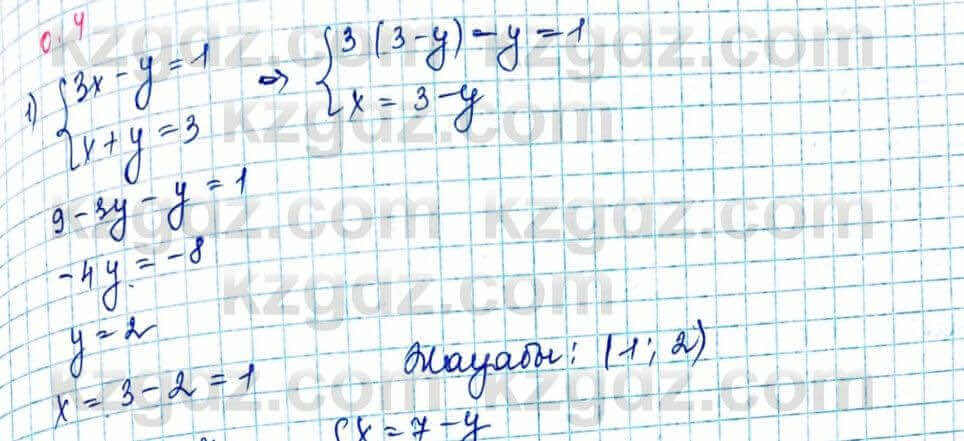 0.4
1) {3x - y = 1 ⇒ {3(3 - y) - y = 1
{x + y = 3 {x = 3 - y
9 - 3y - y = 1
-4y = -8
y = 2
x = 3 - 2 = 1
Жауабы: (1; 2)
{x = 7 - y
kzgdz.com kzgdz.com
kzgdz.com
kzgdz.com kzgdz.com
kzgdz.com
kzgdz.com kzgdz.com